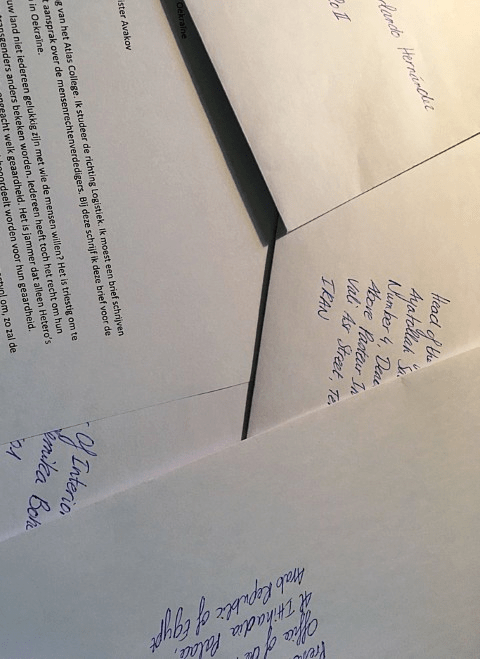 Oekraïne
ister Avakov
g van het Atlas College. Ik studeer de richting Logistiek. Ik moest een brief schrijven
t aansprak over de mensenrechtenverdedigers. Bij deze schrijf ik deze brief voor de
in Oekraïne.
uw land niet iedereen gelukkig zijn met wie de mensen willen? Het is triestig om te
ansgenders anders bekeken worden. Iedereen heeft toch het recht om hun
ongeacht welk geaardheid. Het is jammer dat alleen Hetero's
beoordeelt worden voor hun geaardheid.
om, zo zal de
Hernández
II
Head of the
Ayatollah
Number 4,
Above Pasteur In
Vali Asr Street, Te
IRAN
Of Interio
Office of the
Al Ittihadia Palace,
Arab Republic of Egypt